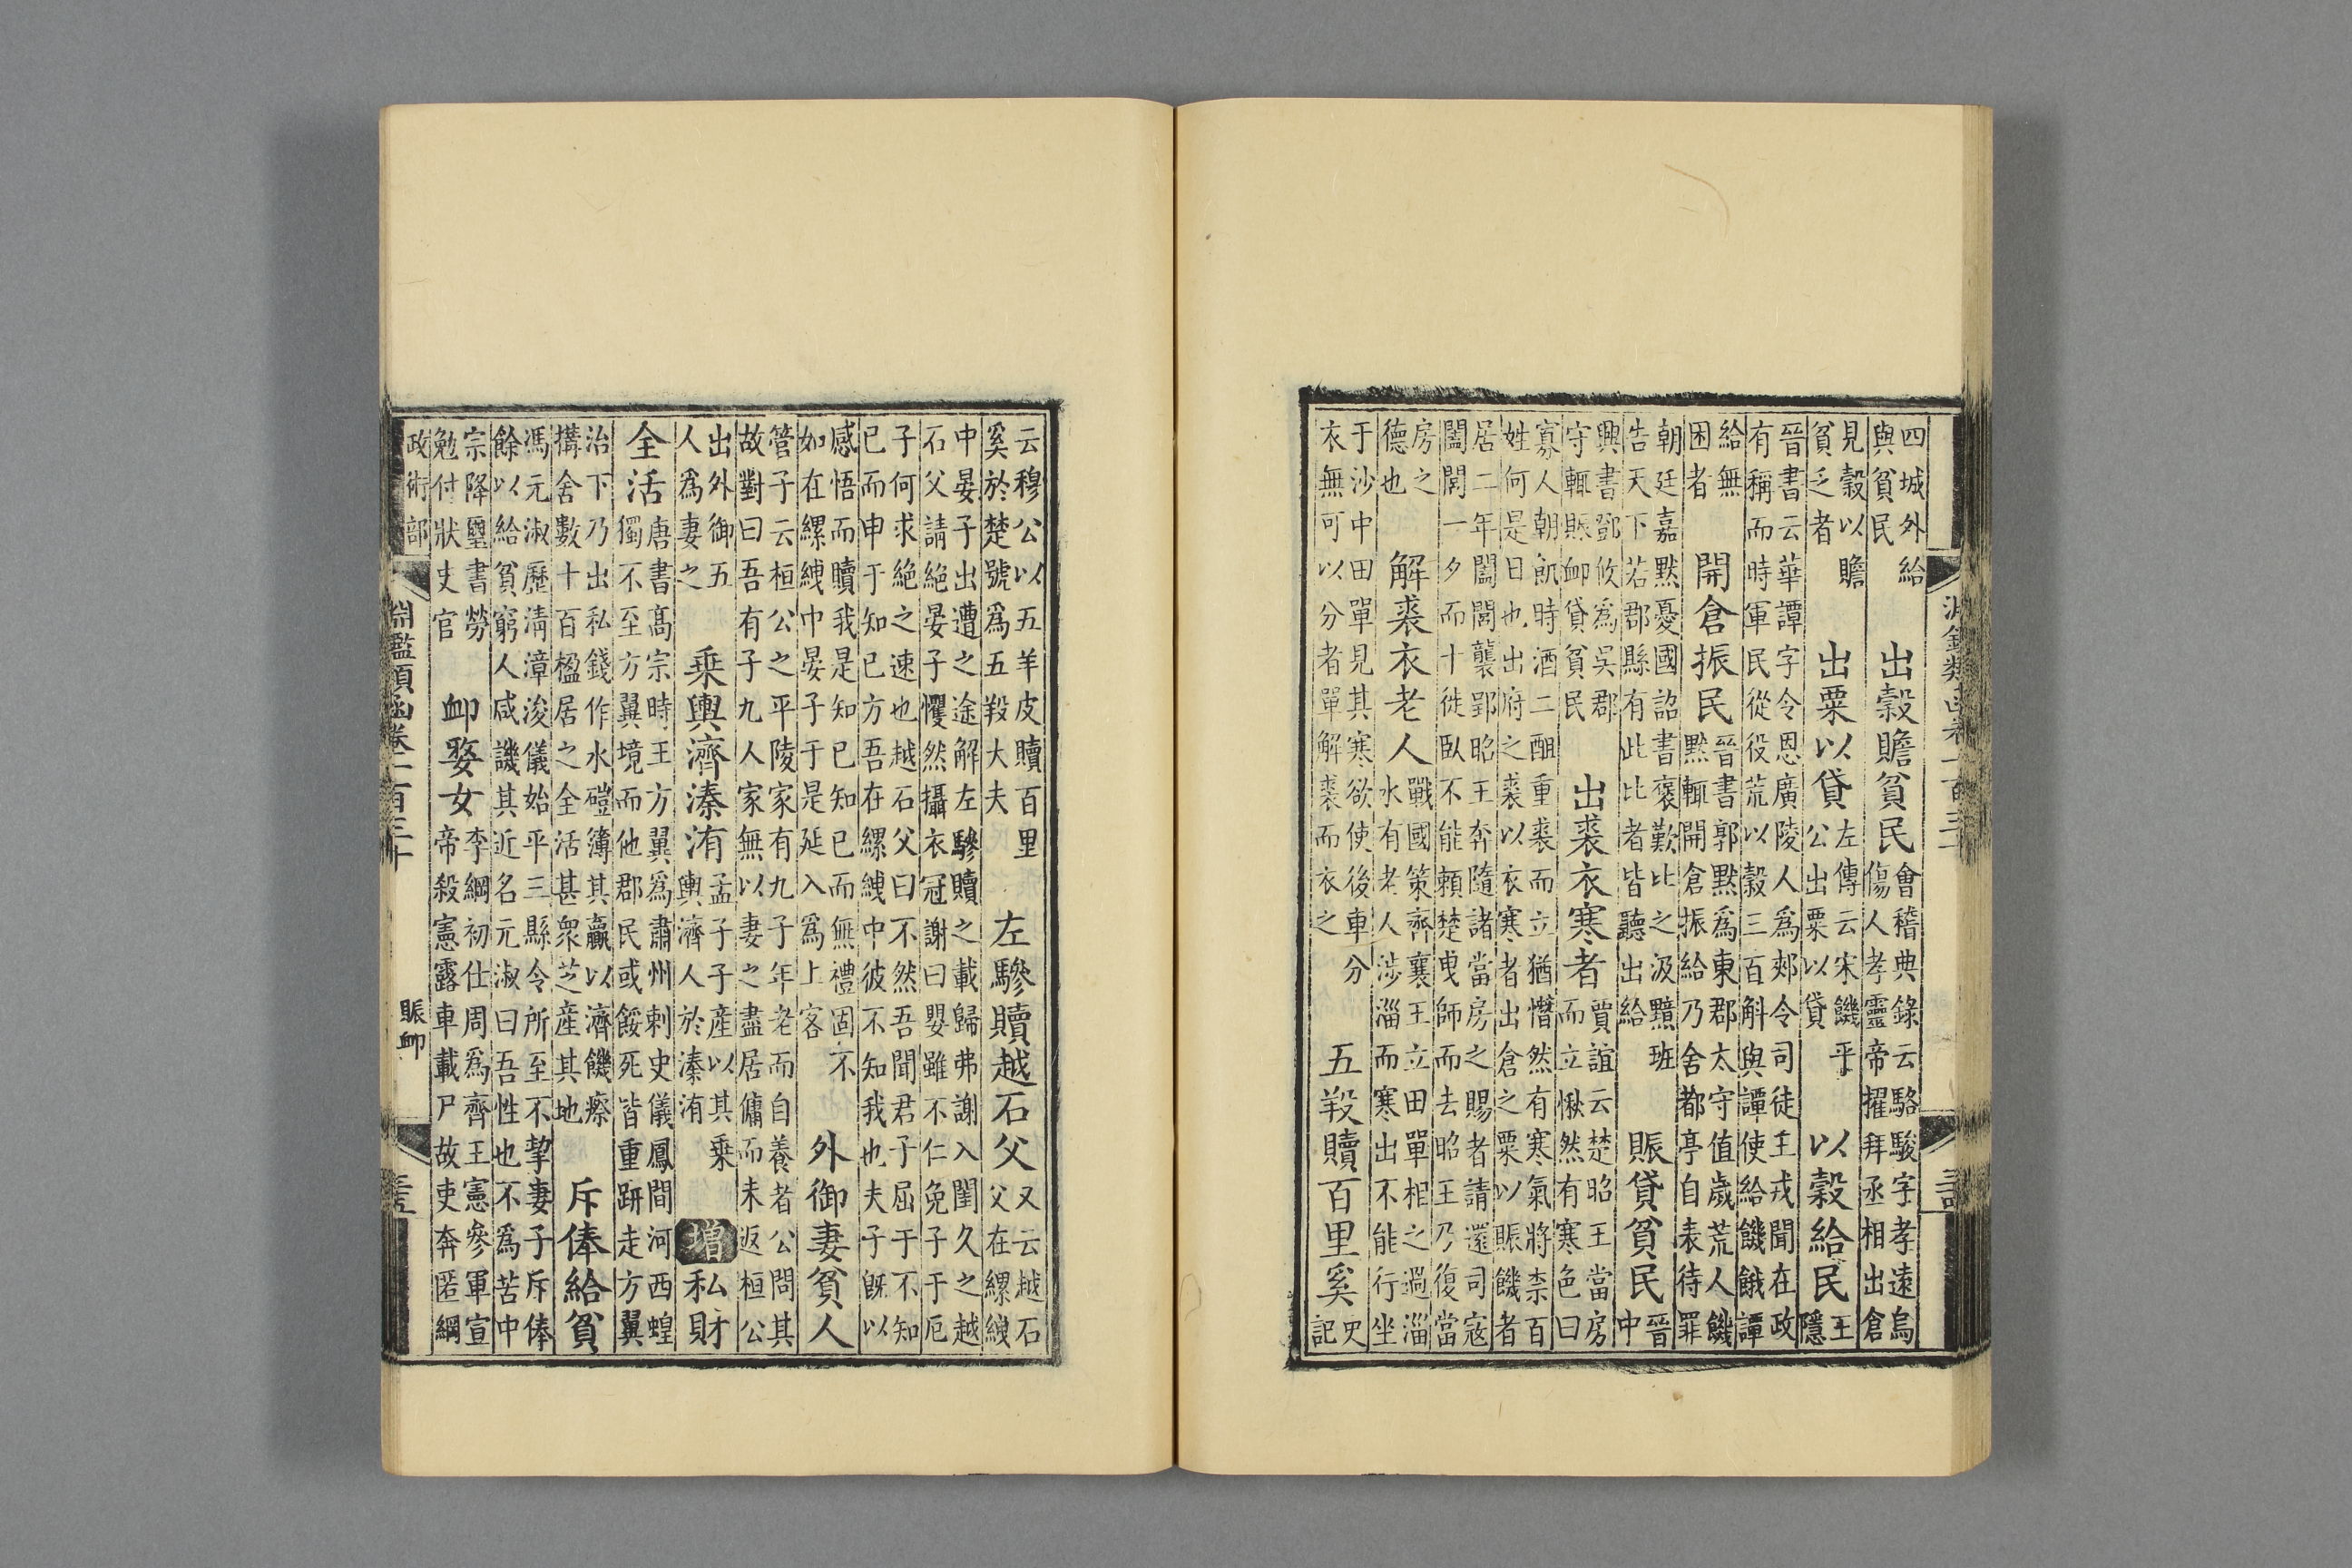 四城外給與貧民 出穀贍貧民 會稽典錄云駱駿字孝遠烏傷人孝靈帝擢拜丞相出倉
見穀以贍貧乏者 出粟以貸 左傳云宋饑平公出粟以貸 以穀給民 王隱
晉書云華譚字令恩廣陵人爲郟令司徒王戎聞在政有稱而時軍民從役荒以穀三百斛與譚使給饑餓譚
給無困者 開倉振民 晉書郭默爲東郡太守值歲荒人饑默輒開倉振給乃舍都亭自表待罪
朝廷嘉默憂國詔書褒歎比之汲黯班告天下若郡縣有此比者皆聽出給 賑貸貧民 晉中
興書鄧攸爲吳郡守輒賑卹貸貧民 出裘衣寒者 賈誼云楚昭王當房而立愀然有寒色曰
寡人朝飢時酒二䣯重裘而立猶憯然有寒氣將柰百姓何是日也出府之裘以衣寒者出倉之粟以賑饑者
居二年闔閭襲郢昭王奔隨諸當房之賜者請還司寇闔閭一夕而十徙臥不能賴楚曳師而去昭王乃復當
房之德也 解裘衣老人 戰國策齊襄王立田單相之過淄水有老人涉淄而寒出不能行坐
于沙中田單見其寒欲使後車分衣無可以分者單解裘而衣之 五羖贖百里奚 史記
云穆公以五羊皮贖百里奚於楚號爲五羖大夫 左驂贖越石父 又云越石父在縲絏
中晏子出遭之途解左驂贖之載歸弗謝入閨久之越石父請絕晏子懼然攝衣冠謝曰嬰雖不仁免子于厄
子何求絕之速也越石父曰不然吾聞君子屈于不知已而申于知已方吾在縲絏中彼不知我也夫子既以
感悟而贖我是知已知已而無禮固不如在縲絏中晏子于是延入爲上客 外御妻貧人
管子云桓公之平陵家有九子年老而自養者公問其故對曰吾有子九人家無以妻之盡居傭而未返桓公
出外御五人爲妻之 乘輿濟溱洧 孟子子產以其乘輿濟人於溱洧 增 私財
全活 唐書高宗時王方翼爲肅州刺史儀鳳間河西蝗獨不至方翼境而他郡民或餒死皆重趼走方翼
治下乃出私錢作水磑簿其贏以濟饑瘵搆舍數十百楹居之全活甚衆芝產其地 斥俸給貧
馮元淑歷清漳浚儀始平三縣令所至不挈妻子斥俸餘以給貧窮人咸譏其近名元淑曰吾性也不爲苦中
宗降璽書勞勉付狀史官 卹娶女 李綱初仕周爲齊王憲參軍宣帝殺憲露車載尸故吏奔匿綱
政術部 淵鑑類函卷一百三十 賑卹